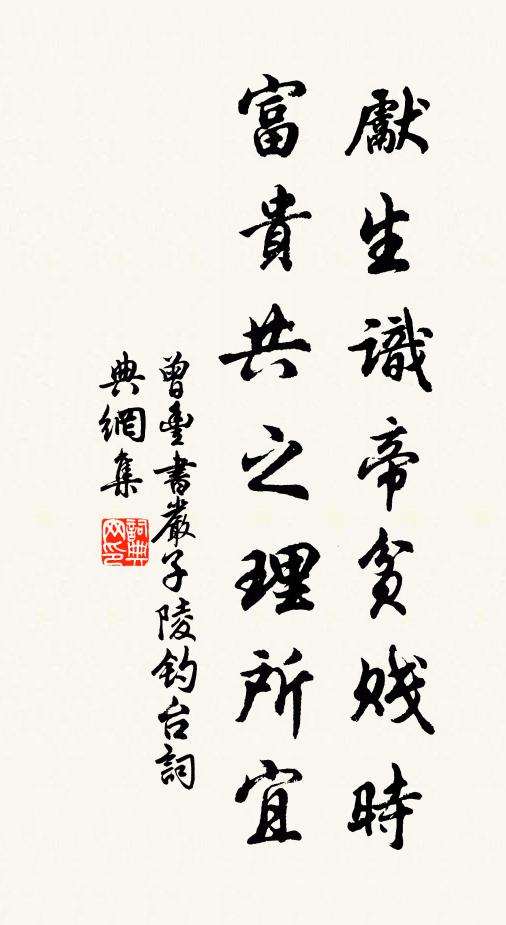 獻生識帝貧賤時
富貴共之理所宜
曾豐書嚴子陵釣台詞
典網集
詞典网印